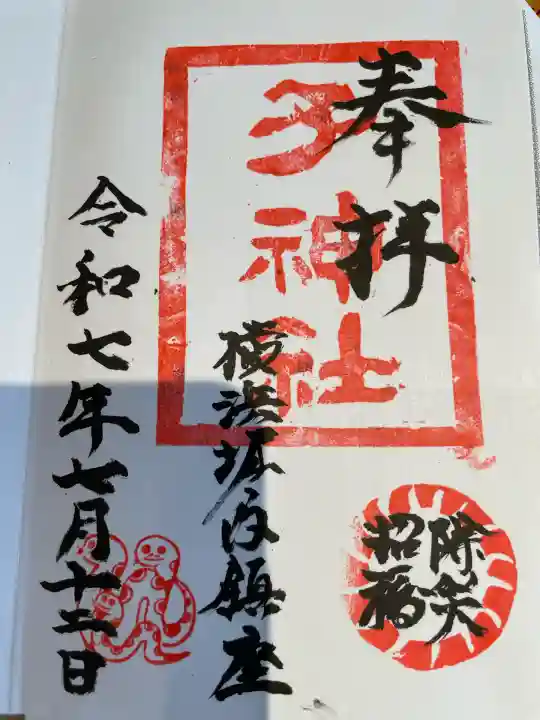 奉拝
子神社
除災
招福
横浜堀ノ内鎮座
令和七年七月十二日